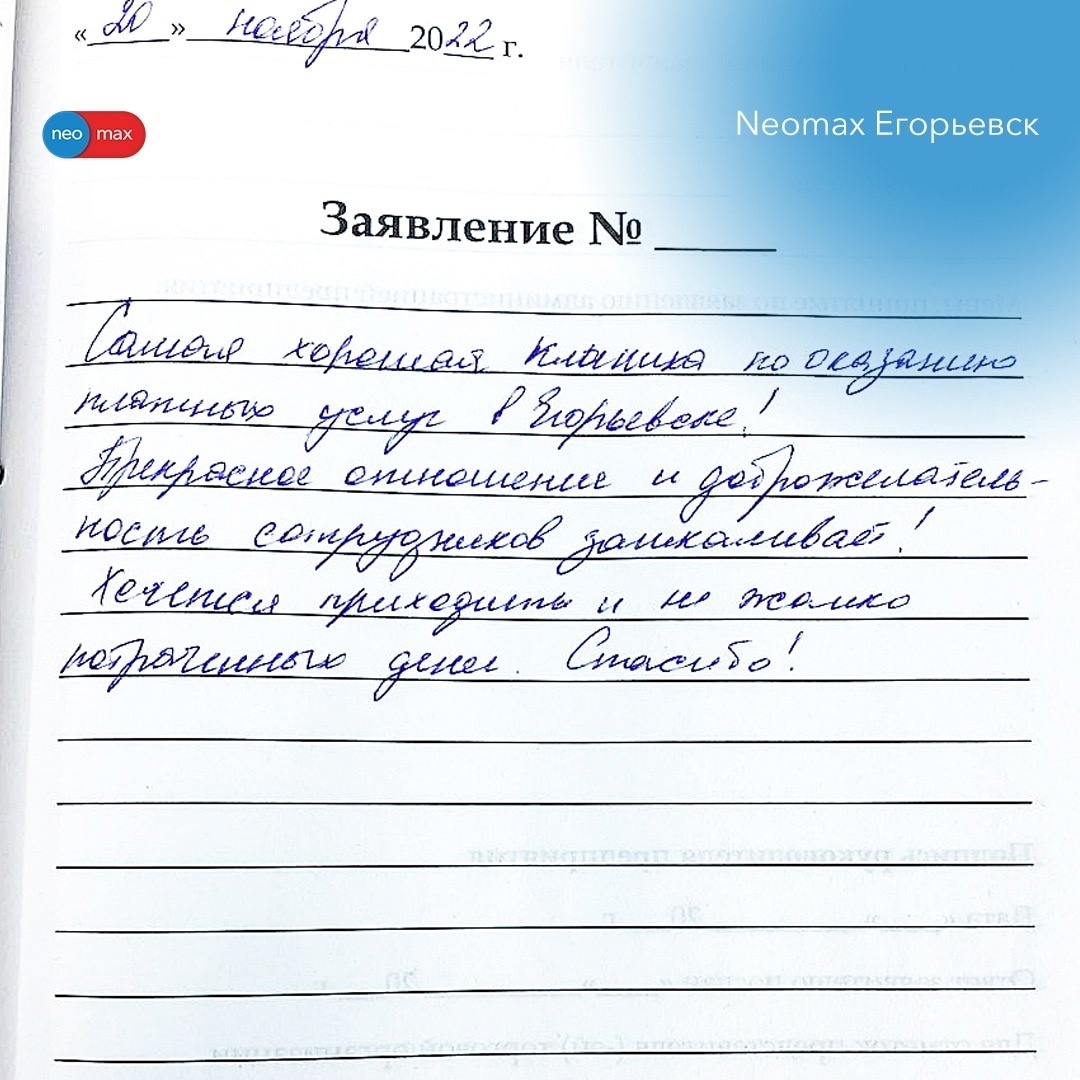 «20» ноября 2022 г.
neo max
Neomax Егорьевск
Заявление № ______
Самая хорошая клиника по оказанию
платных услуг в Егорьевске!
Прекрасное отношение и доброжелатель-
ность сотрудников зашкаливает!
Хочется приходить и не жалко
потраченных денег. Спасибо!